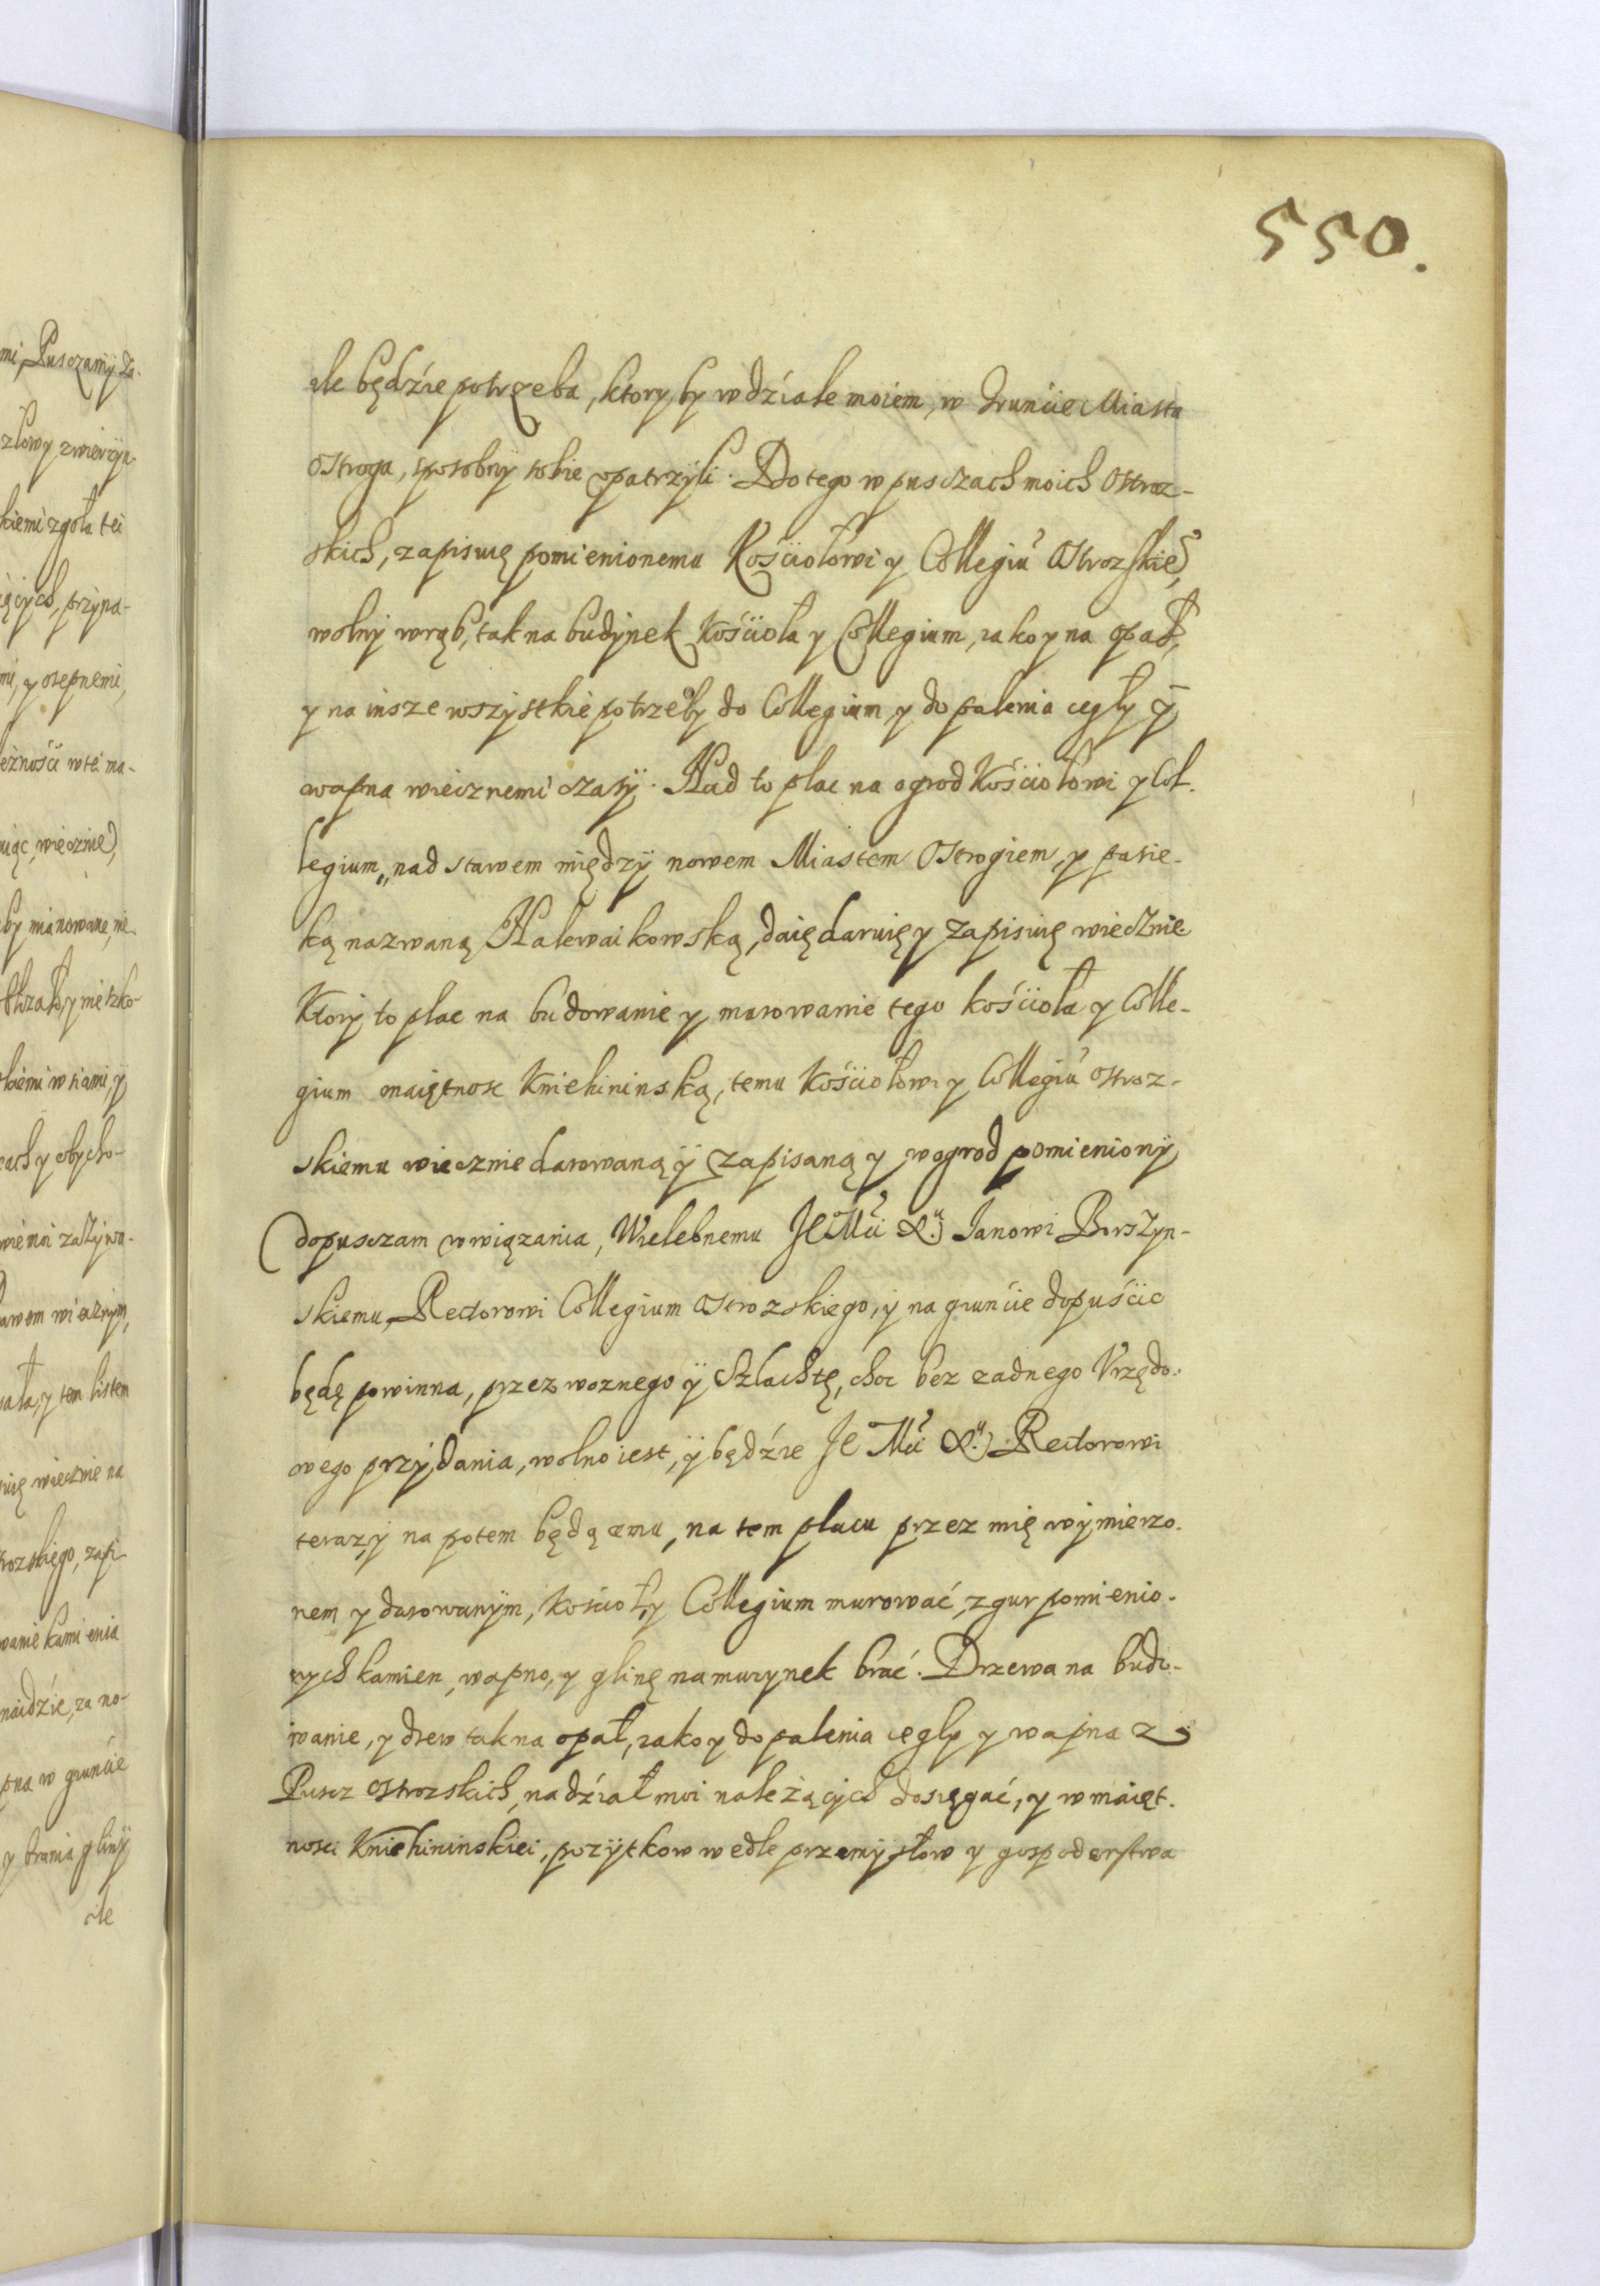 mi, Pusczamy Za-
zlowy zwierzyn-
kiemi zgoła tei
iących, przyna-
mi, y stepnemi,
eżnosći wte ma-
uiąc, wiecznie,
by mianowane, nie
kiemi wsiami, y
ach y obycho-
wiemoi zażywa-
awem wiecznym,
ała, y tem listem
uię wiecznie na
trozskięgo, zapi-
wanie kamienia
naidźie, za no-
pna w grunćie
y brania gliny
ile
550.
ile będźie potrzeba, ktory by w dźiale moiem, w Gruncie Miasta
Ostroga, sposobny sobie opatrzyli. Do tego w pusczach moich Ostroz-
skich, zapisuię pomienionemu Kośćiołowi y Collegiu Ostrozskie,
wolny wrąb, tak na budynek Kośćioła y Collegium, iako y na opał,
y na insze wszystkie potrzeby do Collegium y do palenia cegły y
wapna wiecznemi czasy. Nad to plac na ogrod Kośćiołowi y Col-
legium, nad stawem między nowem Miastem Ostrogiem, y pasie-
ką nazwaną Nalewaikowską, daię daruię y zapisuię wiecznie
Ktory to plac na budowanie y murowanie tego kośćioła y Colle-
gium maiętnosc Kniehininską, temu Kośćiołowi y Collegiu Ostroz-
skiemu wiecznie darowaną y zapisaną y w ogrod pomieniony
dopusczam wwiązania, Wielebnemu Je Mći X. Janowi Borszyn-
skiemu, Rectorowi Collegium Ostrozskiego, y na grunćie dopuśćic
będę powinna, przez woznego y Szlachtę, choc bez zadnego Vrzędo-
wego przydania, wolno iest, y będźie Je Mći X. Rectorowi
teraz, y na potem będącemu, na tem placu przez mię wymierzo-
nem y darowanym, Kosćioł, y Collegium murować, z gur pomienio-
nych kamien, wapno, y glinę na murynek brać. Drzewa na budo-
wanie, y drew tak na opał, iako y do palenia cegły y wapna z
Puscz Ostrozskich, na dźiał moi należących dosięgać, y w maięt-
nosci Kniehininskiei, pożytkow wedle przemysłow y gospodarstwa